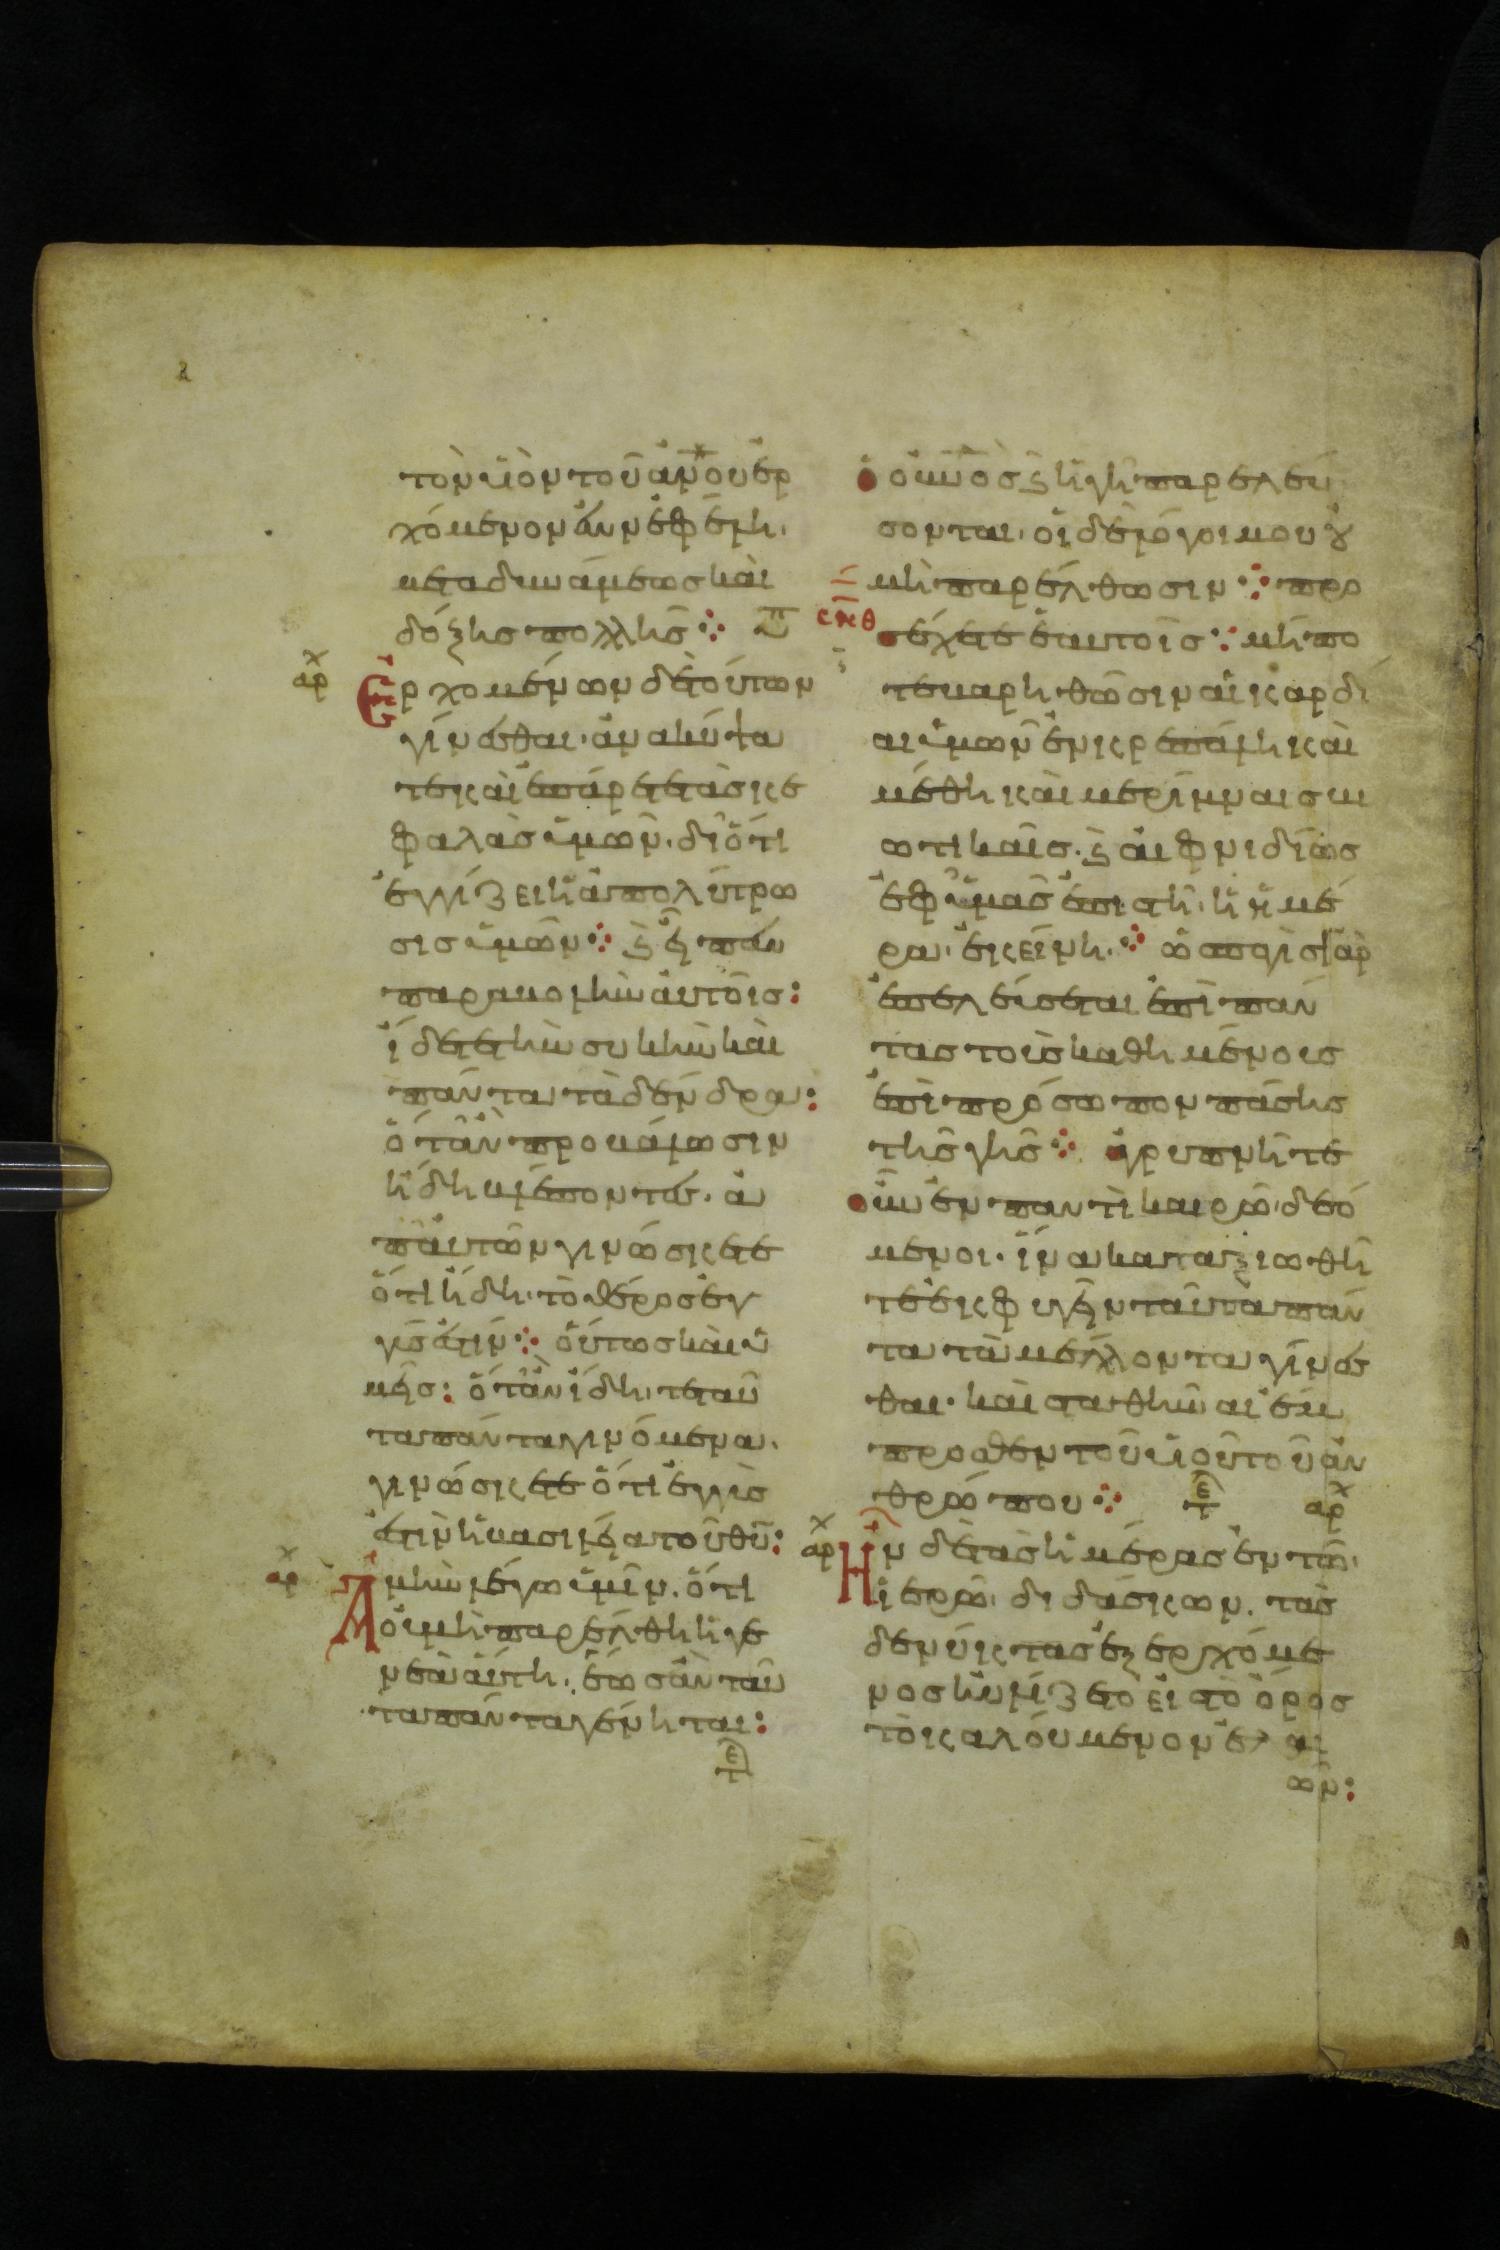 τὸν υἱὸν τοῦ ἀν̅ο̅υ ἐρ
χόμενον ἐν νεφέλη.
μεταδυνάμεως καὶ
δόξης πολλῆς
αρχ
Ἐρχομένων δὲ τούτων
γίνεσθαι. ἀνακύψα
τε καὶ ἐπάρετε τὰς κε
φαλὰς ὑμῶν. διότι
ἐγγίζει ἡ ἀπολύτρω
σις ὑμῶν ϗ εἶπεν
παραβολὴν αὐτοῖς:
ἴδετε τὴν συκὴν καὶ
πάντα τὰ δένδρα:
ὅτἂν προβάλωσιν
ἤδη βλέποντες. ἀ
π αὐτῶν γινώσκετε
ὅτι ἤδη τὸ θέρος ἐγ
γύς ἐστιν οὕτως καὶ ὑ
μεῖς: ὅτἂν ἴδητε ταῦ
τα πάντα γινόμενα.
γινώσκετε ὅτι ἐγγὺς
ἐστιν ἡ βασιλεία τοῦ θ̅υ̅:
αρχ
Ἀμὴν λέγω ὑμῖν. ὅτι
οὐ μὴ παρέλθη ἡ γε
νεὰ αὕτη. ἕως ἂν ταῦ
τα πάντα γένηται:
τε
ὁ οὐ̅ν̅ο̅ς ϗ ἡ γῆ παρελεύ
σονται. οἱ δὲ λόγοι μου οὐ
μὴ παρέλθωσιν προ
σέχετε ἑαυτοῖς μήπο
τε βαρηθῶσιν αἱ καρδί
αι ὑμῶν ἐν κρεπάλη καὶ
μέθη καὶ μερίμναις βι
ωτικαῖς. ϗ αἰφνιδίως
ἐφ ὑμᾶς ἐπιστῆ. ἡ ἡμέ
ρα ἐκείνη. ὡς παγὶς γὰρ
ἐπελεύσεται ἐπὶ πάν
τας τοὺς καθημένοις
ἐπὶ πρόσωπον πάσης
τῆς γῆς ἀγρυπνῆτε
οὖν ἐν παντὶ καιρῶ. δεό
μενοι. ἵνα καταξιωθῆ
τε ἐκφυγεῖν ταῦτα πάν
τα τὰ μέλλοντα γίνεσ
θαι. καὶ σταθῆναι ἔμ
προσθεν τοῦ υἱοῦ τοῦ ἀν
θρώπου τε αρχ
αρχ
Ἦν δὲ τὰς ἡμέρας ἐν τῶ.
ἱερῶ. διδάσκων. τὰς
δὲ νύκτας ἐξερχόμε
νος ηὐλίζετο εἰς τὸ ὄρος
τὸ καλούμενον ἐλαι
ῶν: